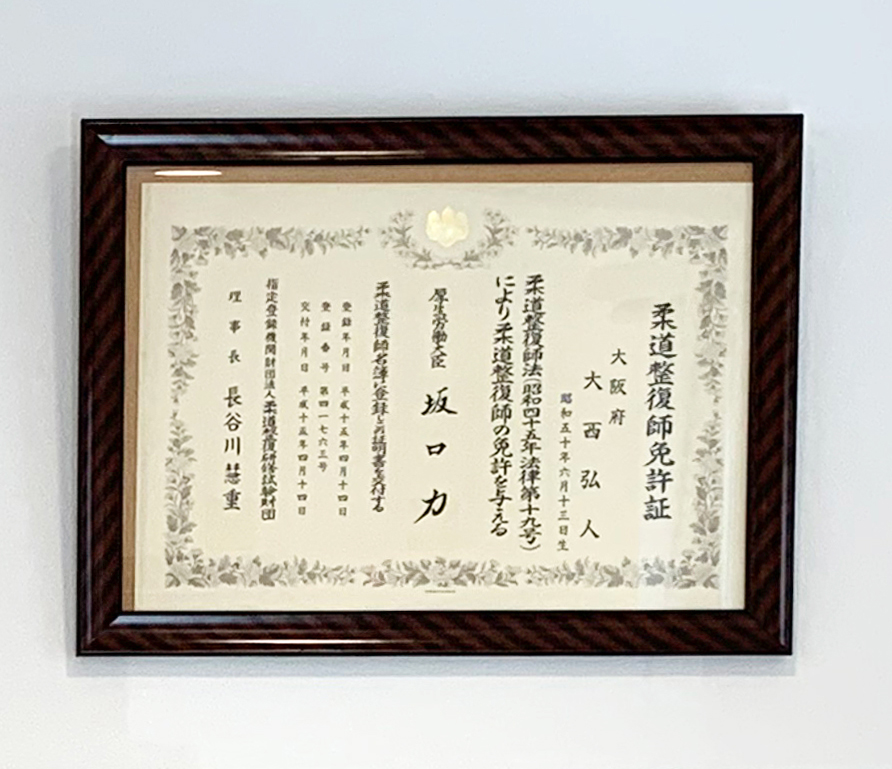 柔道整復師免許証
大阪府
大西弘人
昭和五十年六月十三日生
柔道整復師法(昭和四十五年法律第十九号)
により柔道整復師の免許を与える
厚生労働大臣 坂口力
柔道整復師名簿に登録し此証明書を交付する
登録年月日 平成十五年四月十四日
登録番号 第四一七六三号
交付年月日 平成十五年四月十四日
指定登録機関財団法人柔道整復研修試験財団
理事長 長谷川慧重